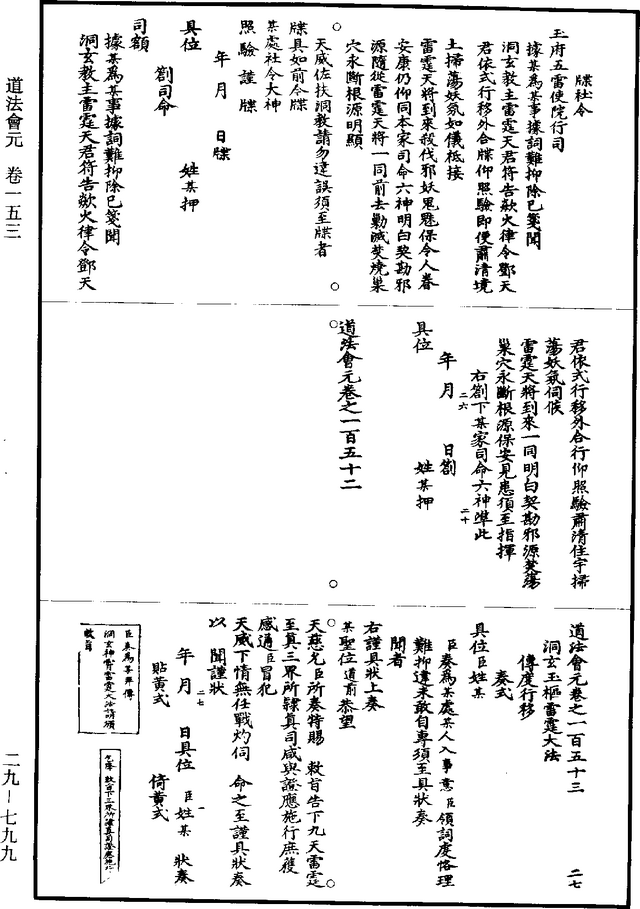 道法會元　卷一五三
二九－七九九
牒社令
玉府五雷使院行司
據某為某事據詞難抑除已箋聞
洞玄教主雷霆天君符告歘火律令鄧天
君依式行移外合牒仰照驗即便肅清境
土掃蕩妖氛如儀祗接
雷霆天將到來殺伐邪妖鬼魅保令人眷
安康仍仰同本家司命六神明白契勘邪
源隨從雷霆天將一同前去勦滅焚燒巢
穴永斷根源明顯
天威佐扶洞教請勿違誤須至牒者
牒具如前令牒
某處社令大神
照驗謹牒
年　月　日牒
具位　姓某押
劄司命
司額
據某為某事據詞難抑除已箋聞
洞玄教主雷霆天君符告歘火律令鄧天
君依式行移外合行仰照驗肅清住宇掃
蕩妖氛伺候
雷霆天將到來一同明白契勘邪源焚蕩
巢穴永斷根源保安見患須至指揮
右劄下某家司命六神準此
二六　二十
年　月　日劄
具位　姓某押
道法會元卷之一百五十二
道法會元卷之一百五十三　二七
洞玄玉樞雷霆大法
傳度行移
奏式
具位臣姓某
臣奏為某處某人入事意臣領詞虔恪理
難抑違未敢自專須至具狀奏
聞者
右謹具狀上奏
某聖位道前恭望
天慈允臣所奏特賜　敕旨告下九天雷霆
至真三界所隸真司咸與證應施行庶獲
感通臣冒犯
天威下情無任戰灼伺　命之至謹具狀奏
以　聞謹狀
二七　一
年　月　日具位　臣姓某　狀奏
貼黃式　倚黃式
臣奏為某奏傳
洞玄神霄雷霆大法請頒
敕旨